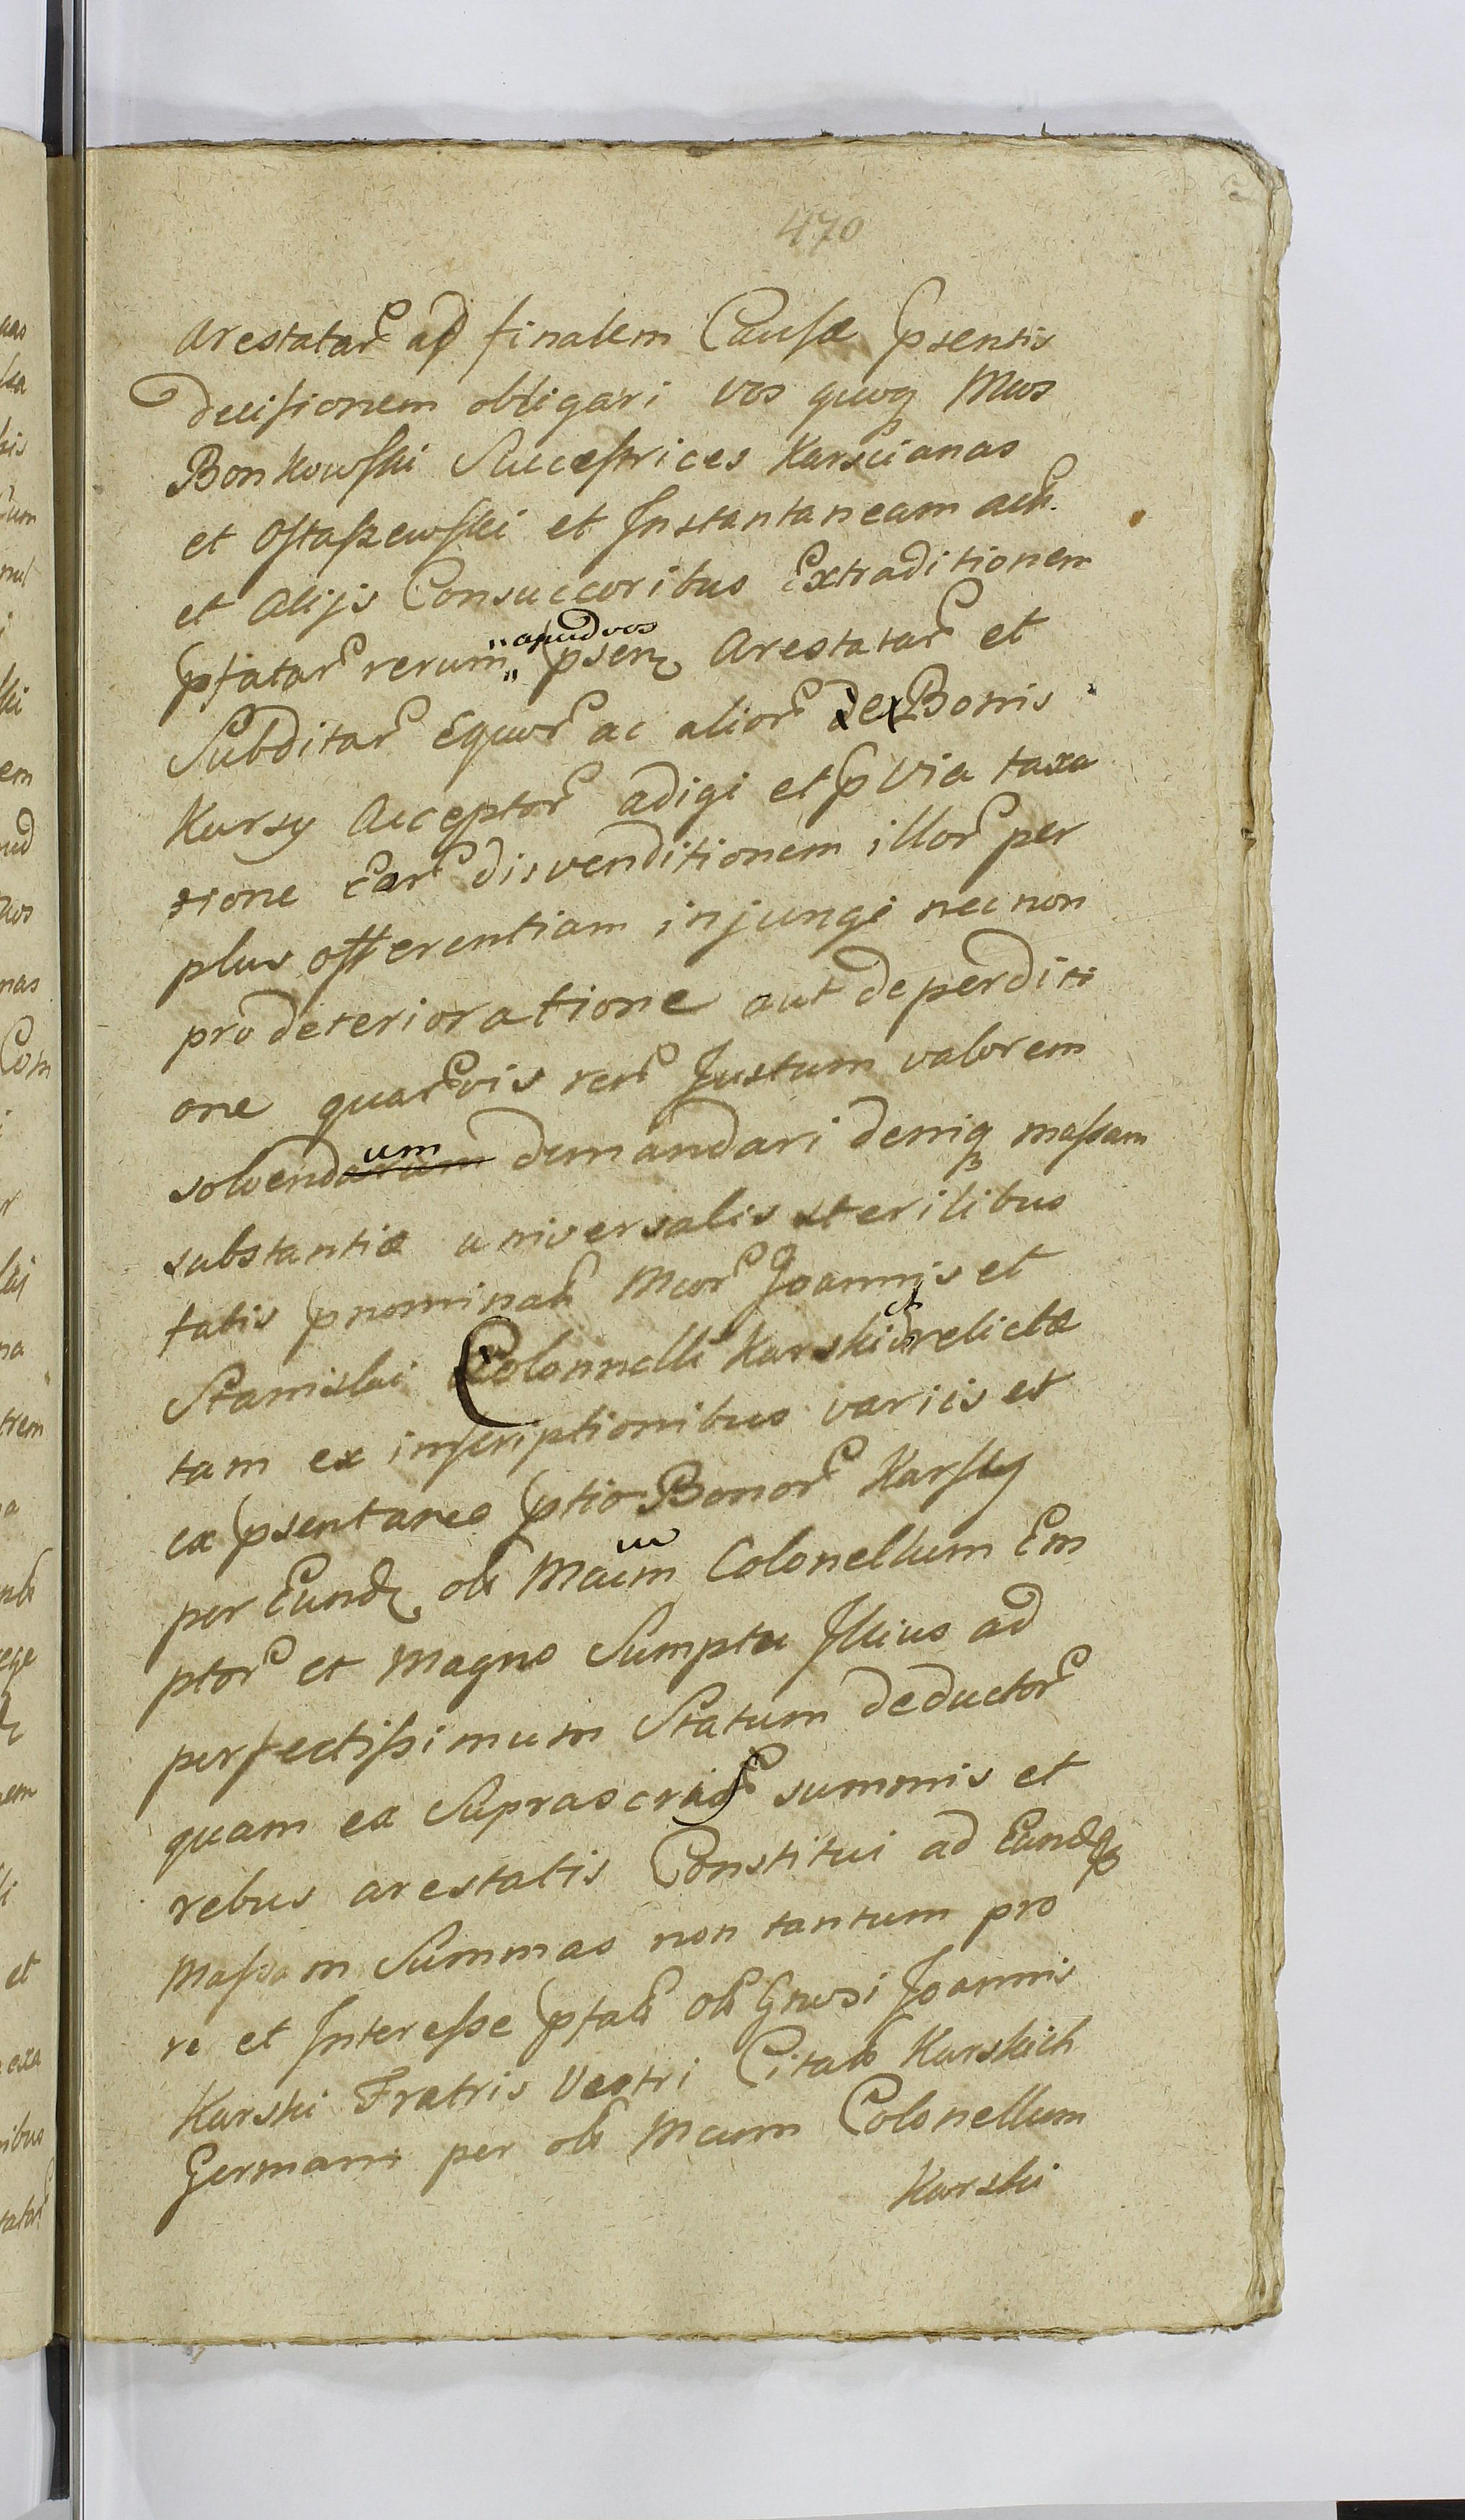 470
arestatar ad finalem Causæ psentis
decisionem obligari vos quoq Mcos
Bonkowski Successrices Karscianas
et Ostaszewski et Instantaneam act.
et Alijs Consuccoribus Extraditionem
pfatar rerum „apud vos„ psen Arestatar et
Subditar Equor ac alior de Bonis
Karsy Acceptor adigi et p via taxa
tione ear disvenditionem illor per
plus offerentiam injungi nec non
pro deterioratione aut deperditi
one quarvis rer Justum valorem
solvendum demandari deniq massam
substantiæ universalis sterilibus
fatis pnominat Mcor Joannis et
Stanislai Colonnelli Karskich relictæ
tam ex inscriptionibus variis et
ex psentaneo ptio Bonor Karsky
per Eund ol Mcum Colonellum Em
ptor et Magno Sumptu Illius ad
perfectissimum Statum deductor
quam ex Suprascrip summis et
rebus arestatis Constitui ad Eandq
Massam Summas non tantum pro
re et Interesse pfati ol Gnosi Joannis
Karski Fratris Vestri Citat Karskich
Germani per ol Mcum Colonellum
Karski